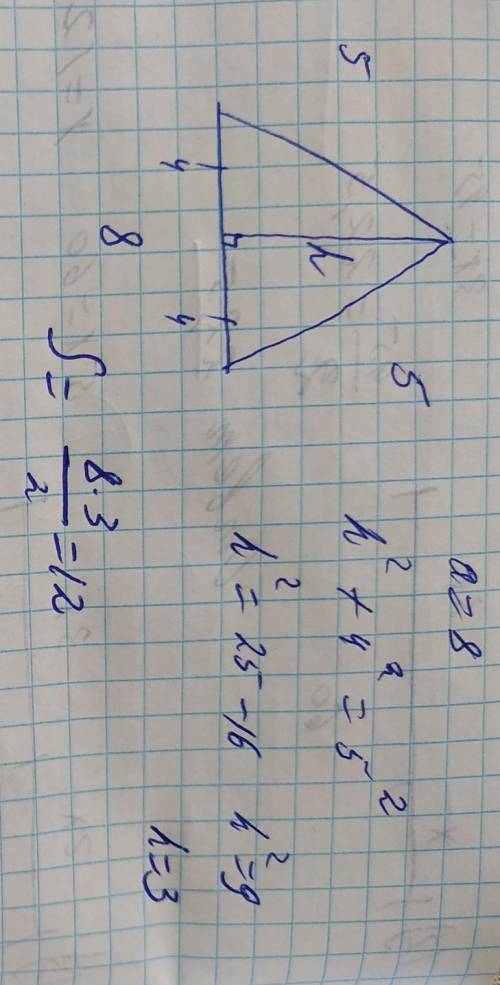 5 h 5
4 4
8
a = 8
h² + 4² = 5²
h² = 25 - 16 h² = 9
h = 3
S = 8·3/2 = 12